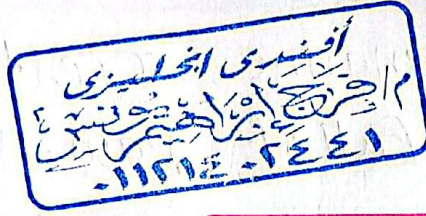 أفندى انجليزى
م/فرج إبراهيم يونس
٠١١٢١٤٠٢٤٤١